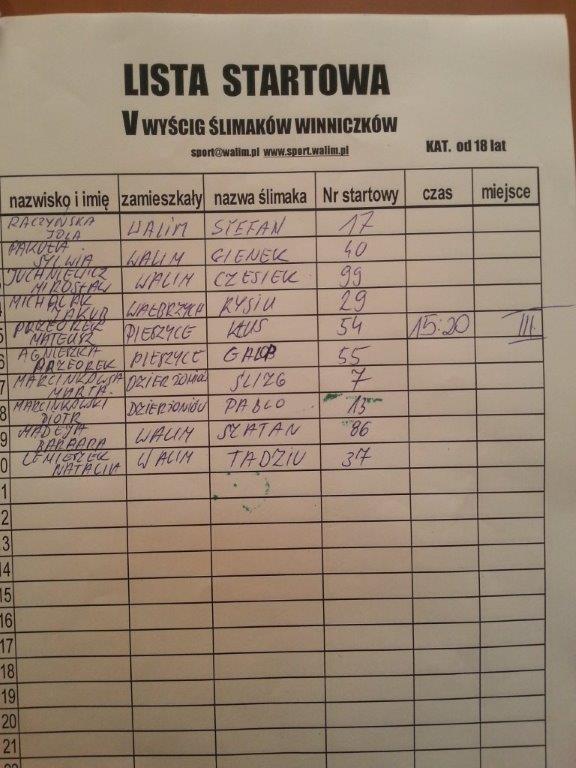 LISTA STARTOWA
V WYŚCIG ŚLIMAKÓW WINNICZKÓW
sport@walim.pl www.sport.walim.pl KAT. od 18 lat
nazwisko i imię zamieszkały nazwa ślimaka Nr startowy czas miejsce
RACZYŃSKA JOLA WALIM STEFAN 17
PAKUŁA SYLWIA WALIM GIENEK 40
JUCHNIEWICZ MIROSŁAW WALIM CZESIEK 99
4 MICHALAK JAKUB WAŁBRZYCH RYSIU 29
5 PRZEOREK MATEUSZ PIESZYCE 54 15:20 III
6 AGNIESZKA PRZEOREK PIESZYCE 55
7 MARCINKOWSKA MARTA DZIERŻONIÓW ŚLIZG 7
8 MARCINKOWSKI PIOTR DZIERŻONIÓW PABLO 13
9 MADEJA BARBARA WALIM SZATAN 86
0 LEMIESZEK NATALIA WALIM TADZIU 37
1
2
3
14
15
16
17
18
19
20
21